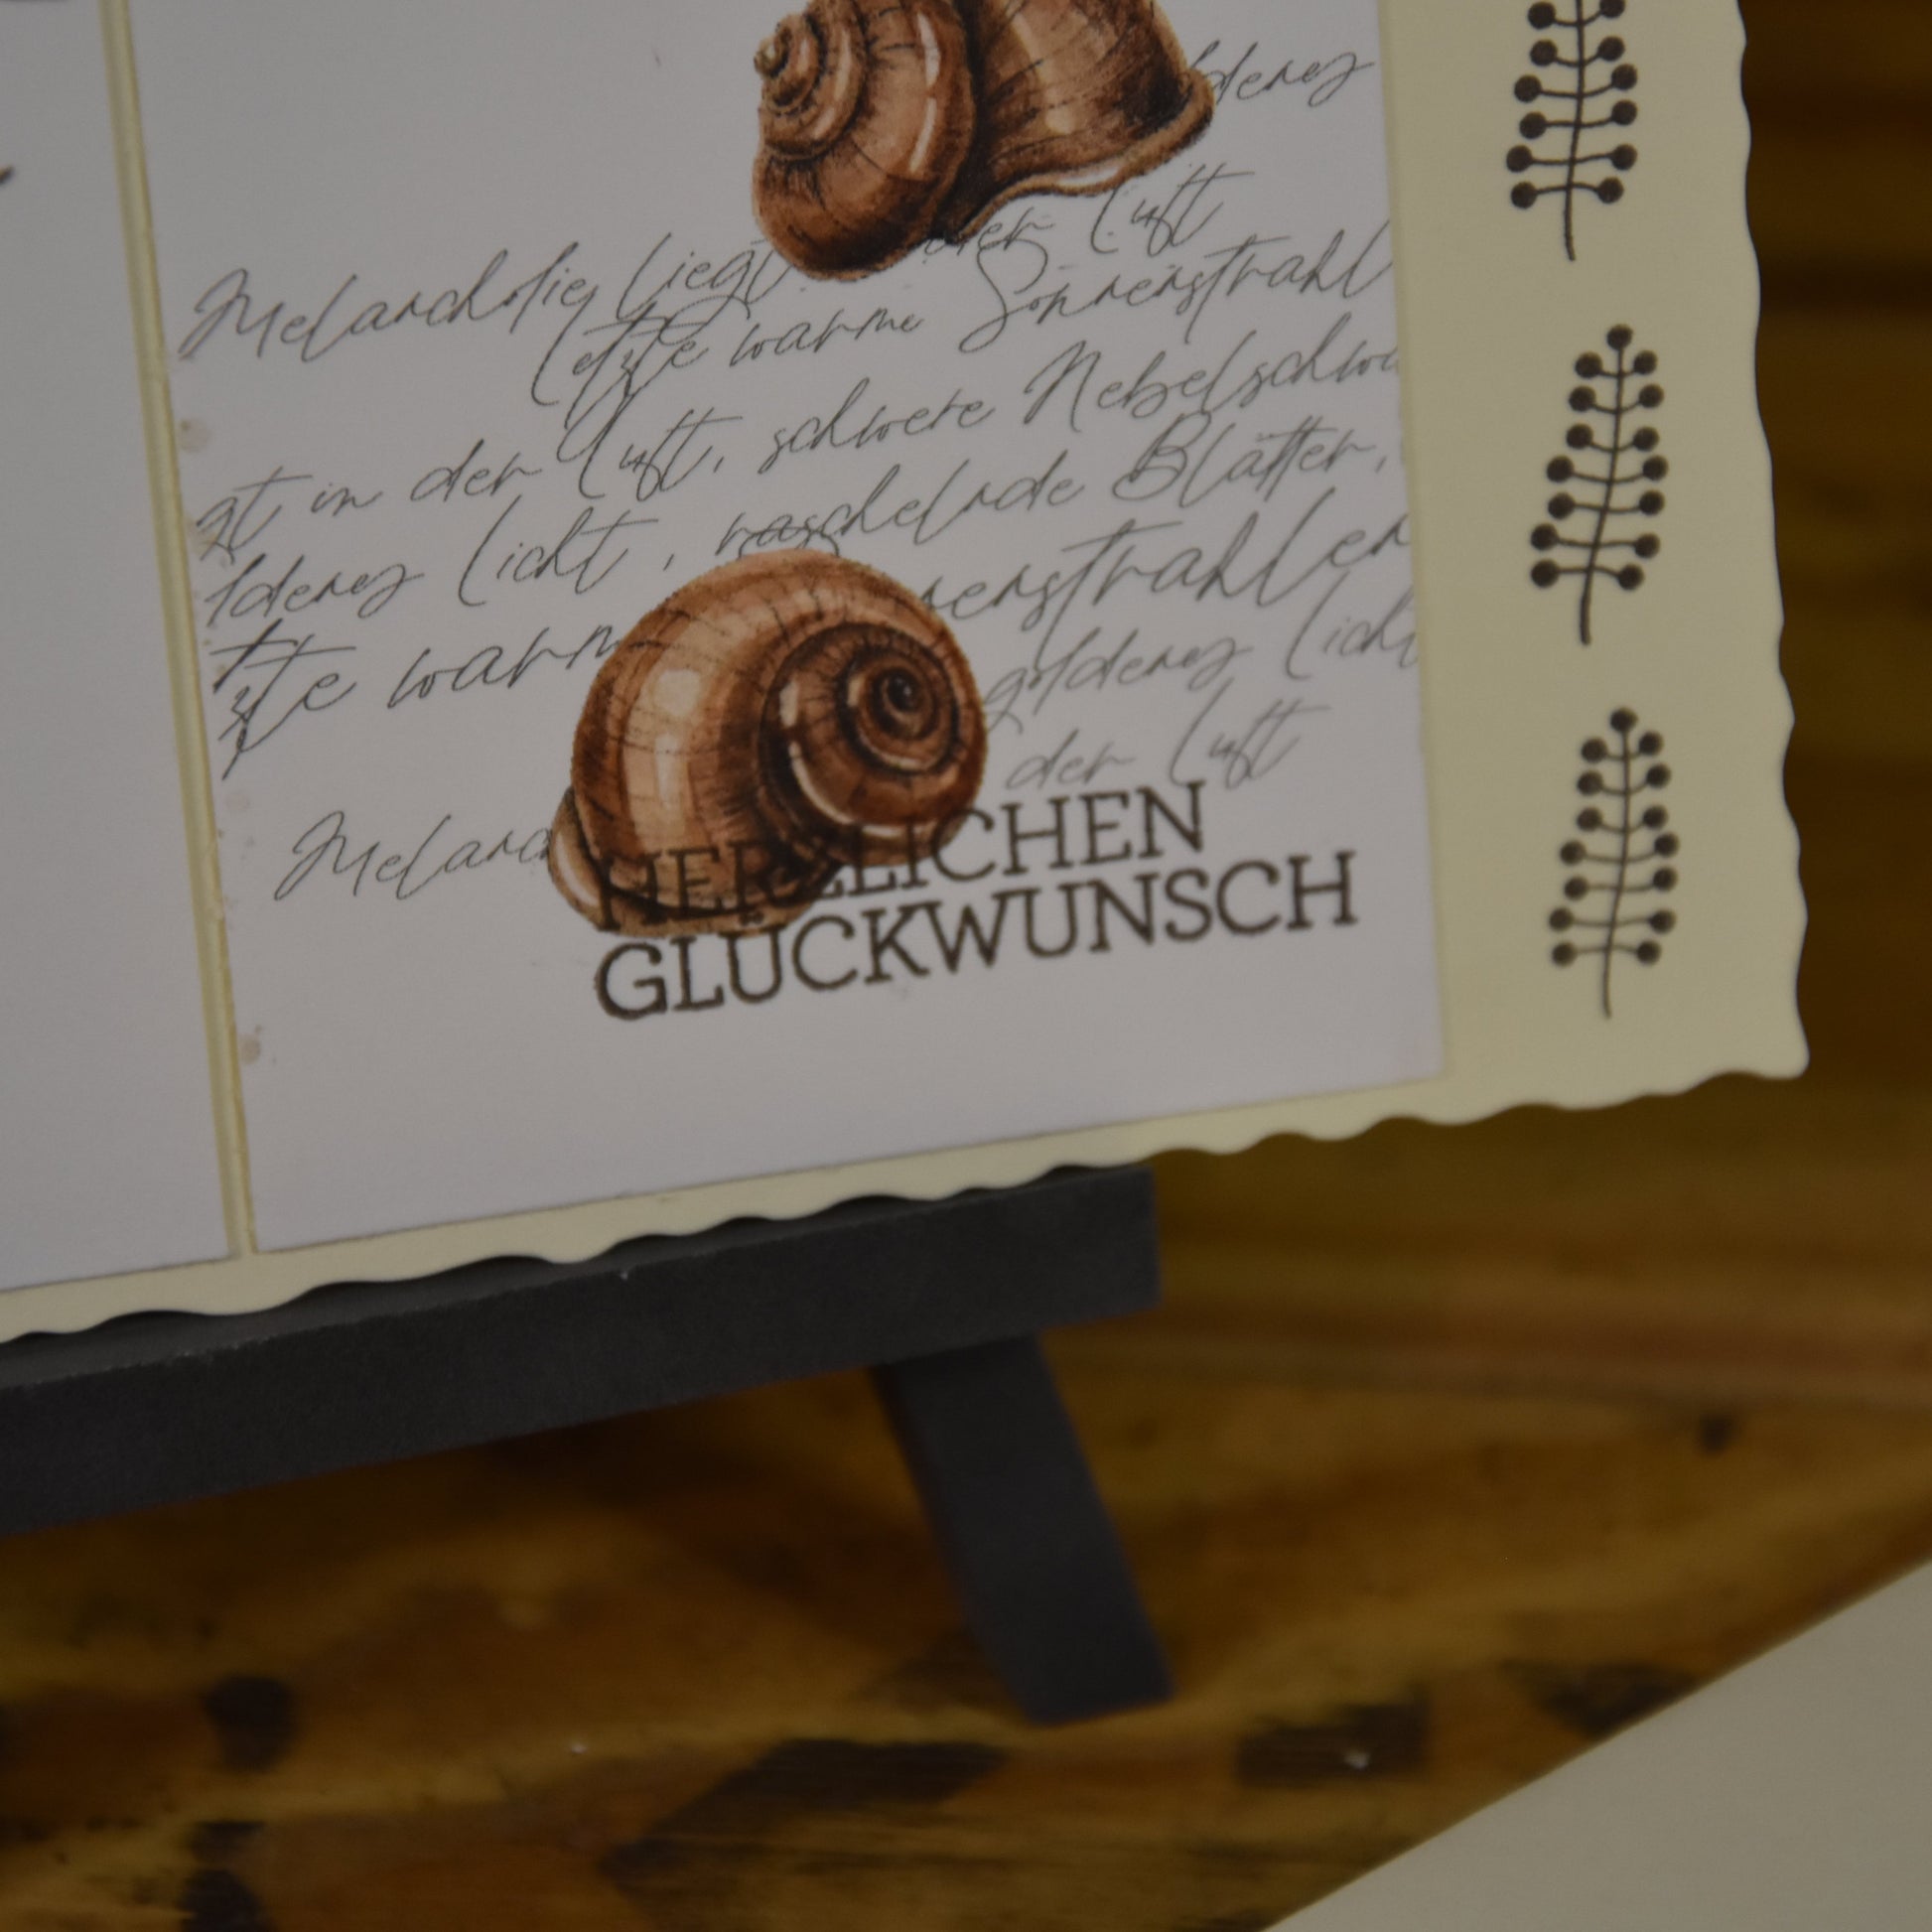 ldenes
Melancholie liegt der Luft
letzte warme Sonnenstrahl
gt in der Luft, schwere Nebelschwa
ldenes Licht, raschelnde Blätter,
zte warm nenstrahlen
goldenes Licht
der Luft
Melanc
HERZLICHEN
GLÜCKWUNSCH